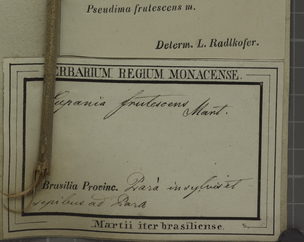 Pseudima frutescens m.
Determ. L. Radlkofer.
ERBARIUM REGIUM MONACENSE.
Cupania frutescens Mart.
Brasilia Provinc. Parà in sylvis et
sepibus ad Para
Martii iter brasiliense.